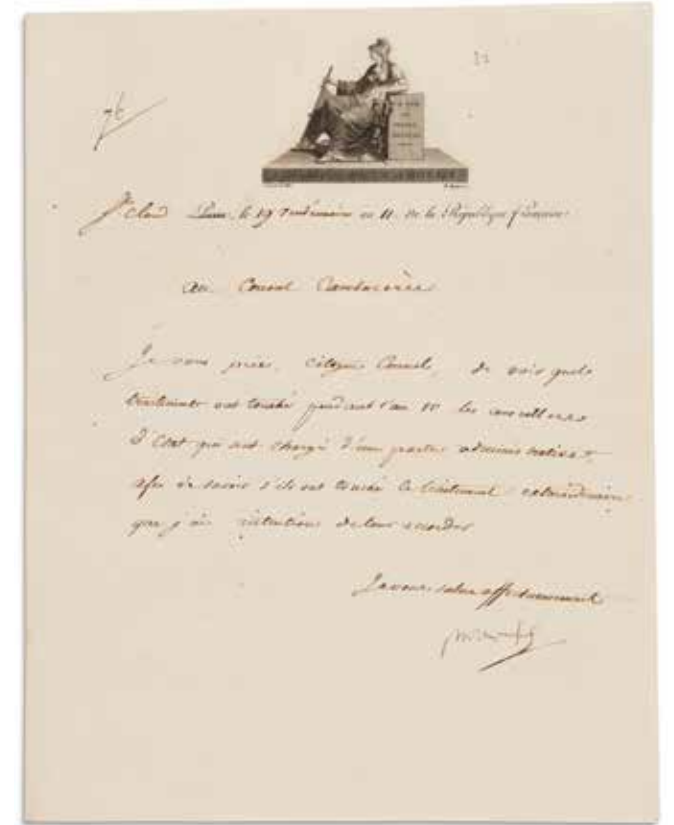 St Cloud Paris, le 19 Vendémiaire an 11. de la République française
au Consul Cambacérès
Je vous prie, citoyen Consul, de voir quels
traitemens ont touché pendant l'an 10 les conseillers
d'Etat qui ont chargé d'une partie administrative
afin de savoir s'ils ont touché le traitement extraordinaire
que j'ai intention de leur accorder
Je vous salue affectueusement